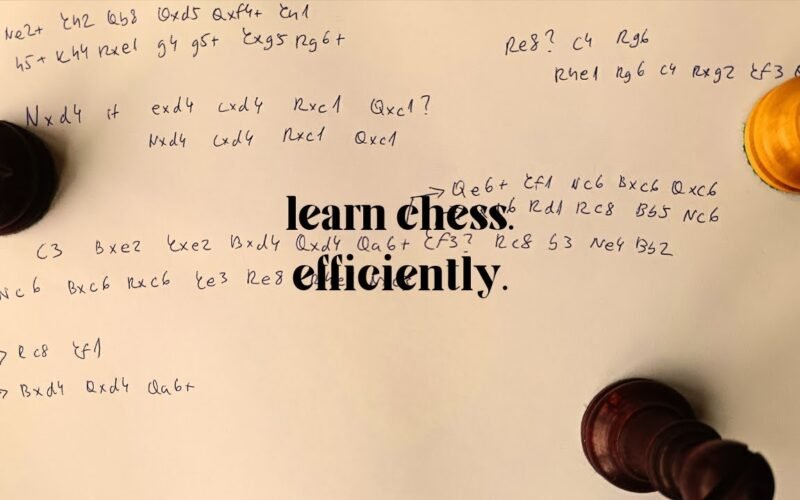 Ne2+ Kh2 Qb8 Qxd5 Qxf4+ Kh1
h5+ Kh4 Rxe1 g4 g5+ Kxg5 Rg6+
Re8? c4 Rg6
Rhe1 Rg6 c4 Rxg2 Kf3
Nxd4 if exd4 cxd4 Rxc1 Qxc1?
Nxd4 cxd4 Rxc1 Qxc1
→ Qe6+ Kf1 Nc6 Bxc6 Qxc6
Rd1 Rc8 Bb5 Nc6
learn chess.
c3 Bxe2 Kxe2 Bxd4 Qxd4 Qa6+ Kf3? Rc8 b3 Ne4 Bb2
efficiently.
Nc6 Bxc6 Rxc6 Ke3 Re8
→ Rc8 Kf1
→ Bxd4 Qxd4 Qa6+